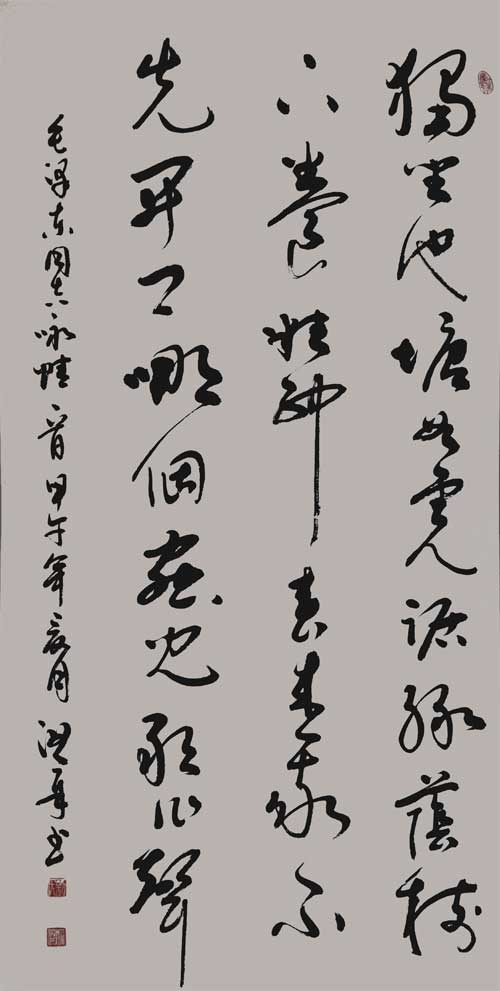 獨坐池塘如虎踞綠蔭樹
下養精神春來我不
先開口哪個蟲兒敢作聲
毛澤東同志咏蛙一首甲午年夏月書